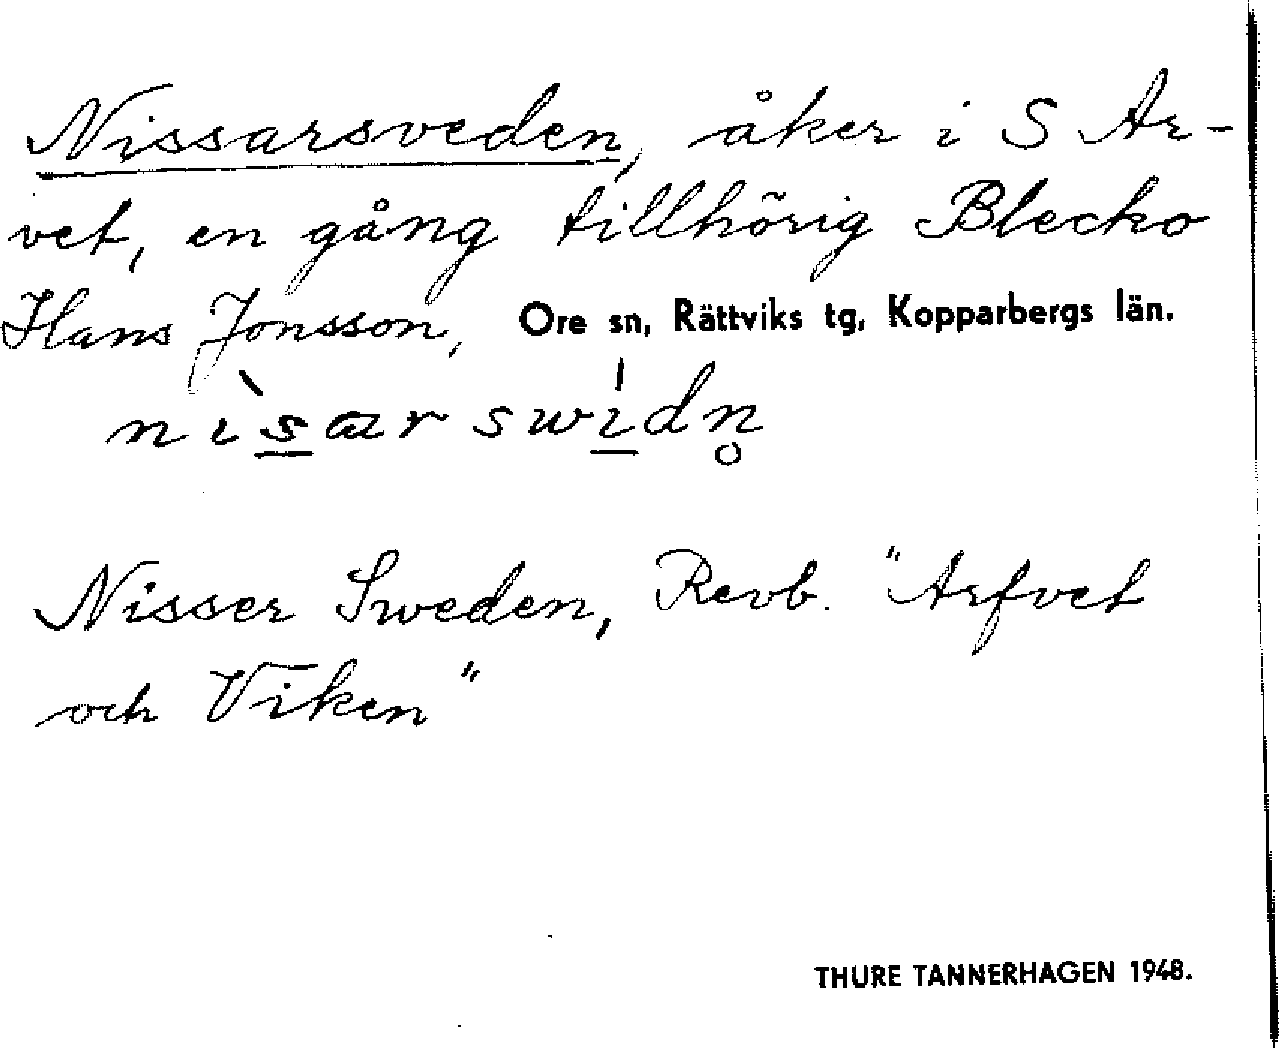 Nissarsveden, åker i S Ar-
vet, en gång tillhörig Blecko
Hans Jonsson, Ore sn, Rättviks tg, Kopparbergs län.
nìs̲ar swi̲̍dn̥
Nisser Sweden, Revb. "Arfvet
och Viken"
THURE TANNERHAGEN 1948.